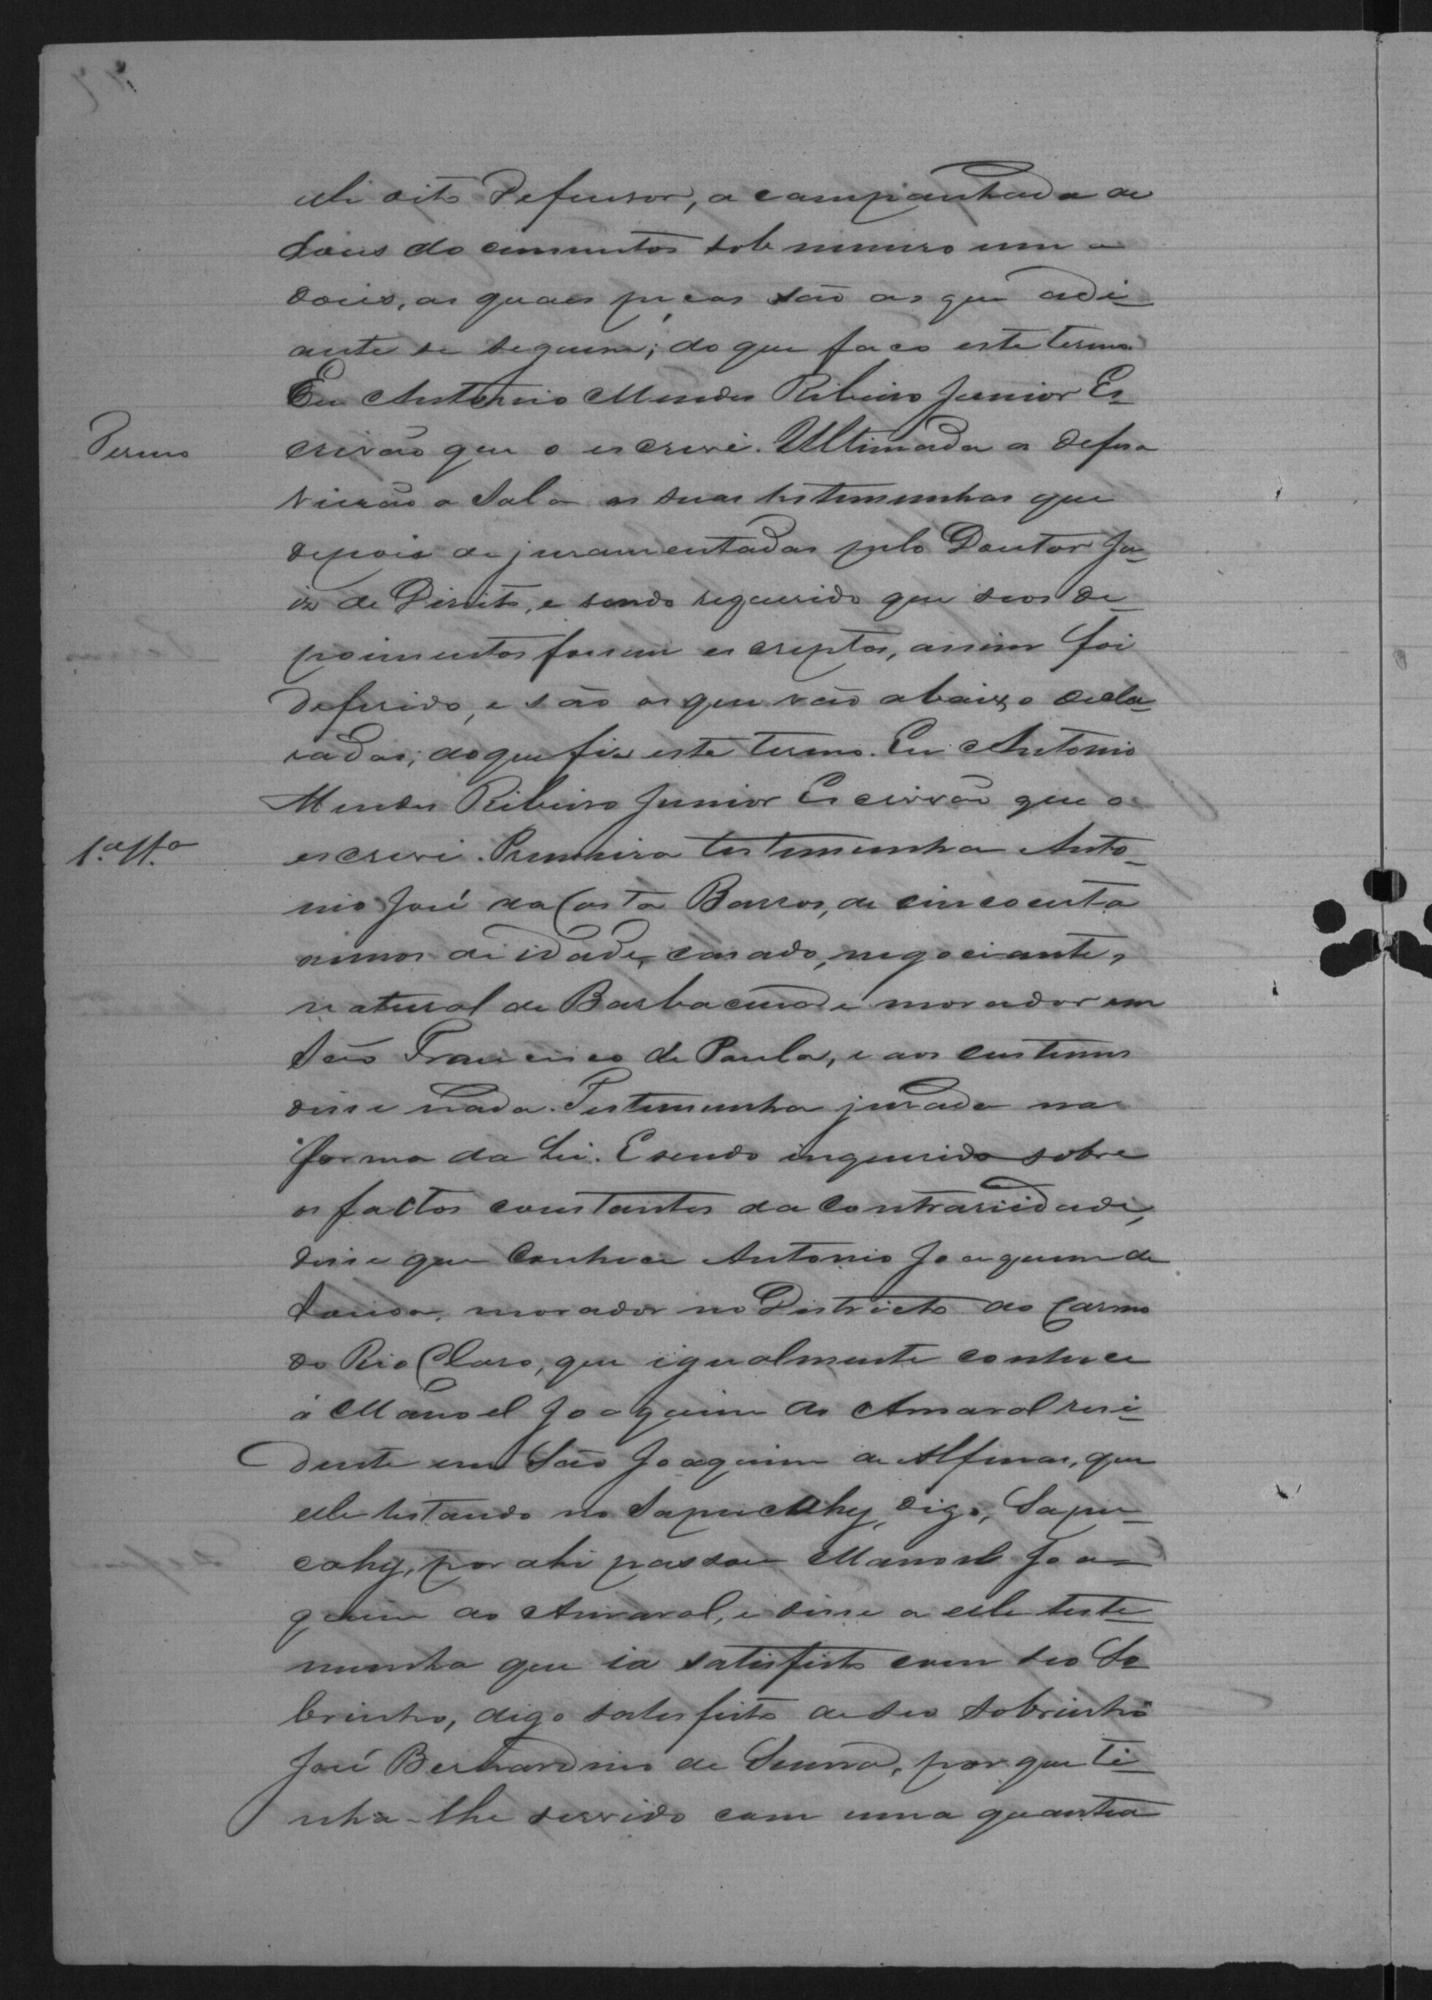 elle dito Defensor, acompanhada de
dous documentos sob numero um e
dous, as quaes peças são as que adi-
ante se seguem; do que faço este termo
Eu Antonio Mendes Ribeiro Junior Es-
Termo
crivão que o escrevi. Ultimada a defesa
vierão a Sala as suas testemunhas que
depois de juramentadas pelo Doutor Ju-
iz de Direito, e sendo requerido que seos de-
poimentos fossem escriptos, assim foi
deferido, e são os que vão abaixo decla-
rados; do que fiz este termo. Eu Antonio
Mendes Ribeiro Junior Escrivão que o
1.ª Tt.ª
escrevi. Primeira testemunha Anto-
nio José da Costa Barros, de cincoenta
annos de idade, casado, negociante,
natural de Barbacena e morador em
São Francisco de Paula, e aos custumes
disse nada. Testemunha jurada na
forma da Lei. E sendo inquerido sobre
os factos constantes da contrariedade,
disse que conhece Antonio Joaquim de
Sousa, morador no Districto do Carmo
do Rio Claro, que igualmente conhece
á Manoel Joaquim do Amaral resi-
dente em São Joaquim de Alfenas, que
elle estando no Sapucahy, digo, Sapu-
cahy, por ahi passou Manoel Joa-
quim do Amaral, e disse a elle teste-
munha que ia satisfeito com seo So-
brinho, digo satisfeito de seo sobrinho
José Bernardino de Senna, por que ti-
nha-lhe servido com uma quantia